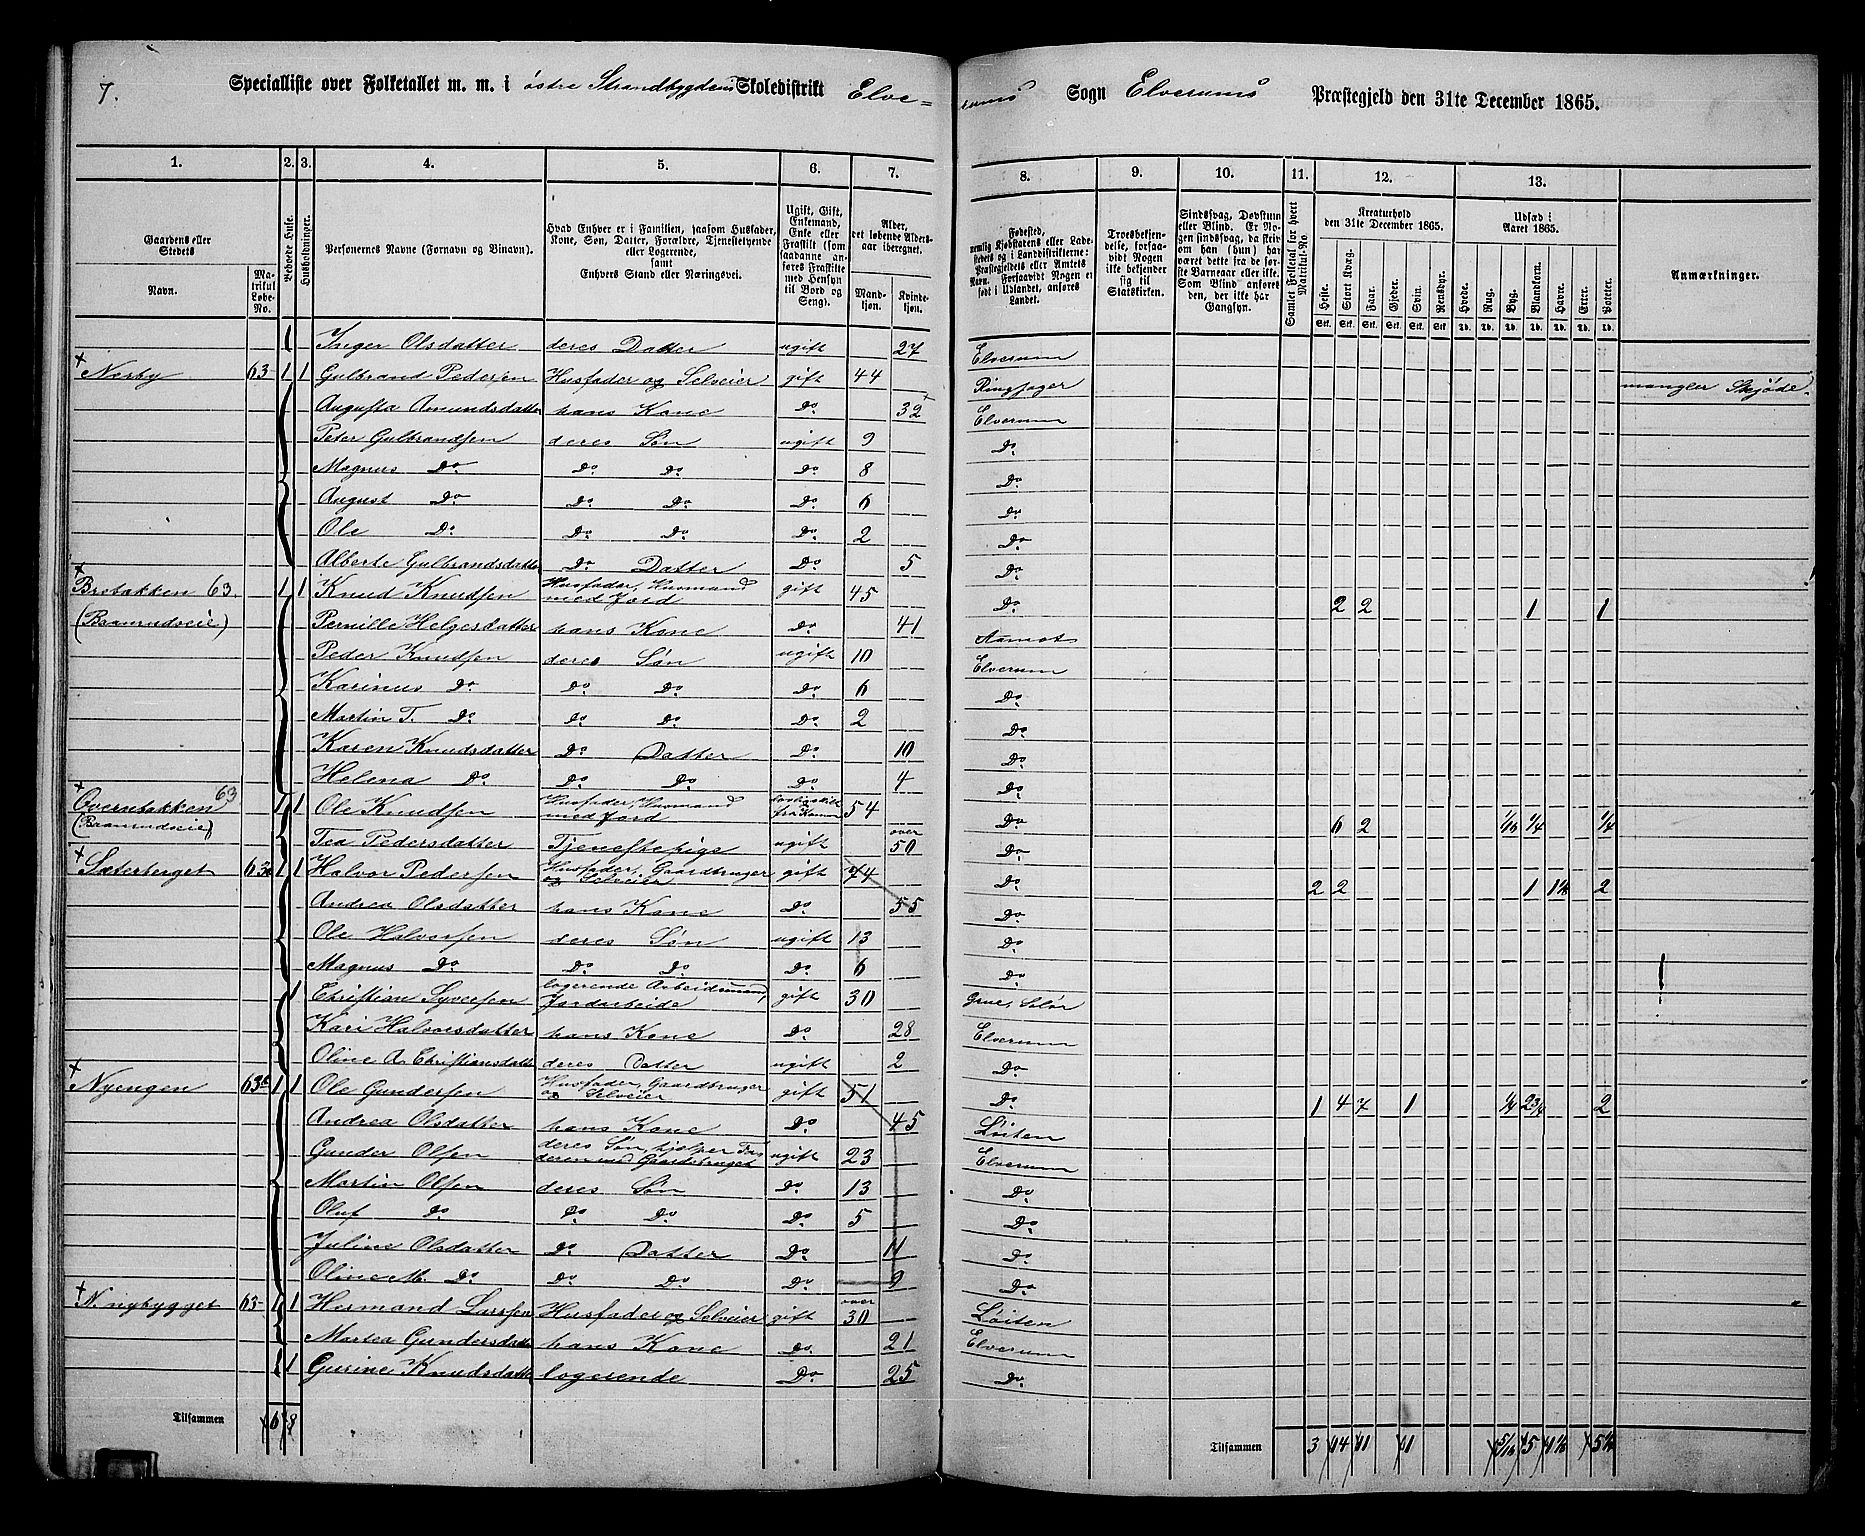 7.
Specialliste over Folketallet m. m. i østre Strandbygdens Skoledistrikt Elve=
rums Sogn Elverums Præstegjeld den 31te December 1865.
1. 2. 3. 4. 5. 6. 7. 8. 9. 10. 11. 12. 13.
Gaardens eller Stedets
Navn.
Matrikul Løbe-No.
Beboede Huse.
Husholdninger.
Personernes Navne (Fornavn og Binavn).
Hvad Enhver er i Familien, saasom Husfader, Kone, Søn, Datter, Forældre, Tjenestetyende eller Logerende, samt Enhvers Stand eller Næringsvei.
Ugift, Gift, Enkemand, Enke eller Fraskilt (som saadanne anføres Fraskilte med Hensyn til Bord og Seng).
Alder, det løbende Alders-aar iberegnet.
Mandkjøn.
Kvindekjøn.
Fødested, nemlig Kjøbstadens eller Ladestedets eller i Landdistrikterne: Præstegjeldets eller Amtets Navn. Forsaavidt Nogen er født i Udlandet, anføres Landet.
Troesbekjendelse, forsaavidt Nogen ikke bekjender sig til Statskirken.
Sindssvag, Døvstum eller Blind. Er Nogen sindssvag, da skrives om han (hun) har været dette fra de første Barneaar eller ikke. Som Blind anføres den, der ikke har Gangsyn.
Samlet Folketal for hvert Matrikul-No
Kreaturhold den 31te December 1865.
Heste. Stort Kvæg. Faar. Gjeder. Svin. Rensdyr.
Udsæd i Aaret 1865.
Hvede. Rug. Byg. Blandkorn. Havre. Erter. Poteter.
Anmærkninger.
1 Inger Olsdatter deres Datter ugift 27 Elverum
Nærby 63 1 1 Gulbrand Pedersen Husfader og Selveier gift 44 Ringsager mangler Skjøde.
Augusta Amundsdatter hans Kone Do 32 Elverum
Peter Gulbrandsen deres Søn ugift 9 Do
Magnus Do Do Do Do 8 Do
August Do Do Do Do 6 Do
Ole Do Do Do Do 2 Do
Alberte Gulbrandsdatter Do Datter Do 5 Do
Brobakken 63 1 1 Knud Knudsen Husfader, Husmand med Jord gift 45 Do 2 2 1 1
(Braarudveie) Pernille Helgesdatter hans Kone Do 41 Aamot
Peder Knudsen deres Søn ugift 10 Elverum
Karinus Do Do Do Do 6 Do
Martin T. Do Do Do Do 2 Do
Karen Knudsdatter Do Datter Do 10 Do
Helena Do Do Do Do 4 Do
63 1 1 Ole Knudsen Husfader, Husmand med Jord fra Konen 54 Do 6 2 1/16 1/4 1/4
Tea Pedersdatter Tjenestepige ugift over 50 Do
Sæterberget 63 1 1 Halvor Pedersen Husfader, Gaardbruger og Selveier gift 74 Do 2 2 1 1½ 2
Andrea Olsdatter hans Kone Do 55 Do
Ole Halvorsen deres Søn ugift 13 Do
Magnus Do Do Do Do 6 Do
1 Christian Syversen logerende Arbeidsmand, Jordarbeide gift 30 Grue, Solør
Kari Halvorsdatter hans Kone Do 28 Elverum
Oline A. Christiansdatter deres Datter ugift 2 Do
Nyengen 63 1 1 Ole Gundersen Husfader, Gaardbruger og Selveier gift 51 Do 1 4 7 1 2¾ 2
Andrea Olsdatter hans Kone Do 45 Løiten
Gunder Olsen deres Søn, hjelper Faderen med Gaardsbruget ugift 23 Elverum
Martin Olsen deres Søn Do 13 Do
Oluf Do Do Do Do 5 Do
Juline Olsdatter Do Datter Do 11 Do
Oline M. Do Do Do Do 9 Do
N. nybygget 63 1 1 Hermand Larssen Husfader og Selveier gift over 30 Løiten
Martea Gundersdatter hans Kone Do 21 Elverum
1 1 Gurine Knudsdatter logerende Do 25 Do
Tilsammen 6 8
Tilsammen 3 14 11 1 5/16 5 5½